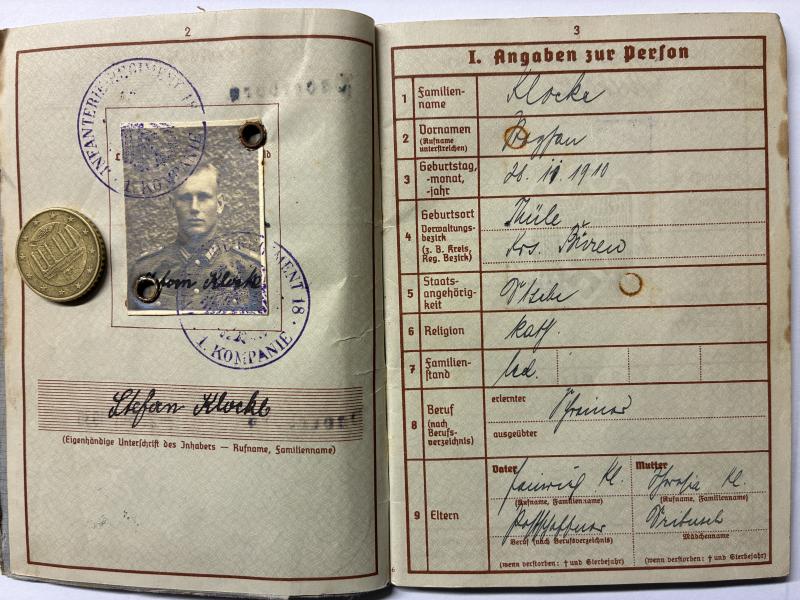 2
INFANTERIE-REGIMENT 18
1. KOMPANIE
Stefan Klocke
REGIMENT 18
1. KOMPANIE
Stefan Klocke
(Eigenhändige Unterschrift des Inhabers — Rufname, Familienname)
3
I. Angaben zur Person
1 Familienname Klocke
2 Vornamen (Rufname unterstreichen)
3 Geburtstag, -monat, -jahr 28. 11. 1910
4 Geburtsort Thüle
Verwaltungsbezirk (z. B. Kreis, Reg. Bezirk) Krs. Büren
5 Staatsangehörigkeit Dtsche
6 Religion kath.
7 Familienstand led.
8 Beruf (nach Berufsverzeichnis) erlernter Schreiner
ausgeübter
Vater Mutter
9 Eltern Kl. Kl.
(Rufname, Familienname) (Rufname, Familienname)
Beruf (nach Berufsverzeichnis) Mädchenname
(wenn verstorben: † und Sterbejahr) (wenn verstorben: † und Sterbejahr)